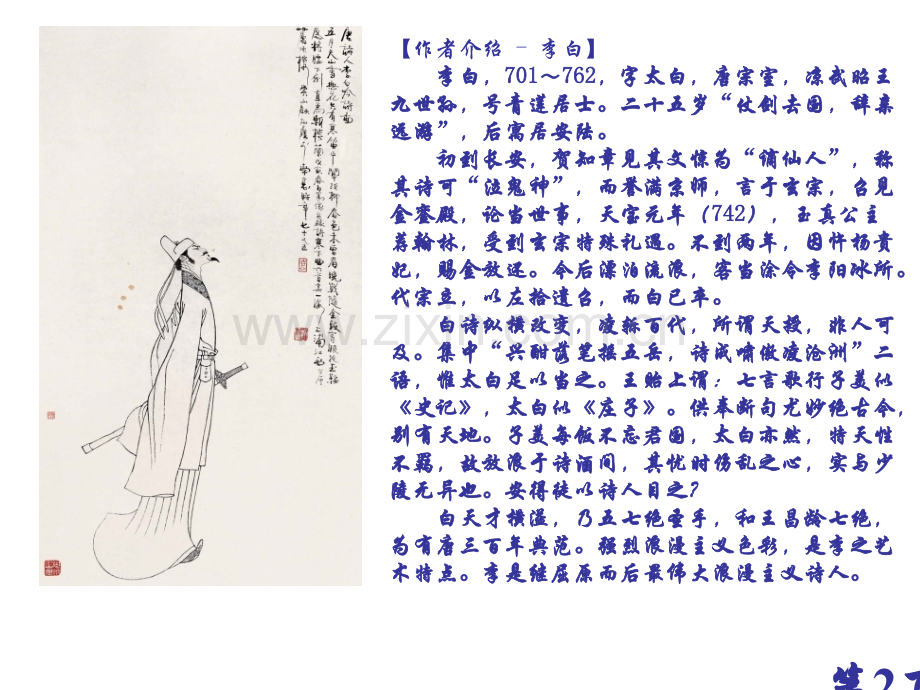 【作者介绍 - 李白】
李白，701～762，字太白，唐宗室，凉武昭王
九世孙，号青莲居士。二十五岁“仗剑去国，辞亲
远游”，后寓居安陆。
初到长安，贺知章见其文惊为“谪仙人”，称
其诗可“泣鬼神”，而誉满京师，言于玄宗，召见
金銮殿，论当世事，天宝元年（742），玉真公主
荐翰林，受到玄宗特殊礼遇。不到两年，因忤杨贵
妃，赐金放还。今后漂泊流浪，客当涂令李阳冰所。
代宗立，以左拾遗召，而白已卒。
白诗纵横改变，凌轹百代，所谓天授，非人可
及。集中“兴酣落笔摇五岳，诗成啸傲凌沧洲”二
语，惟太白足以当之。王贻上谓：七言歌行子美似
《史记》，太白似《庄子》。供奉断句尤妙绝古今，
别有天地。子美每饭不忘君国，太白亦然，特天性
不羁，故放浪于诗酒间，其忧时伤乱之心，实与少
陵无异也。安得徒以诗人目之？
白天才横溢，乃五七绝圣手，和王昌龄七绝，
为有唐三百年典范。强烈浪漫主义色彩，是李之艺
术特点。李是继屈原而后最伟大浪漫主义诗人。
www.zixin.com.cn
唐诗人李白吟诗图